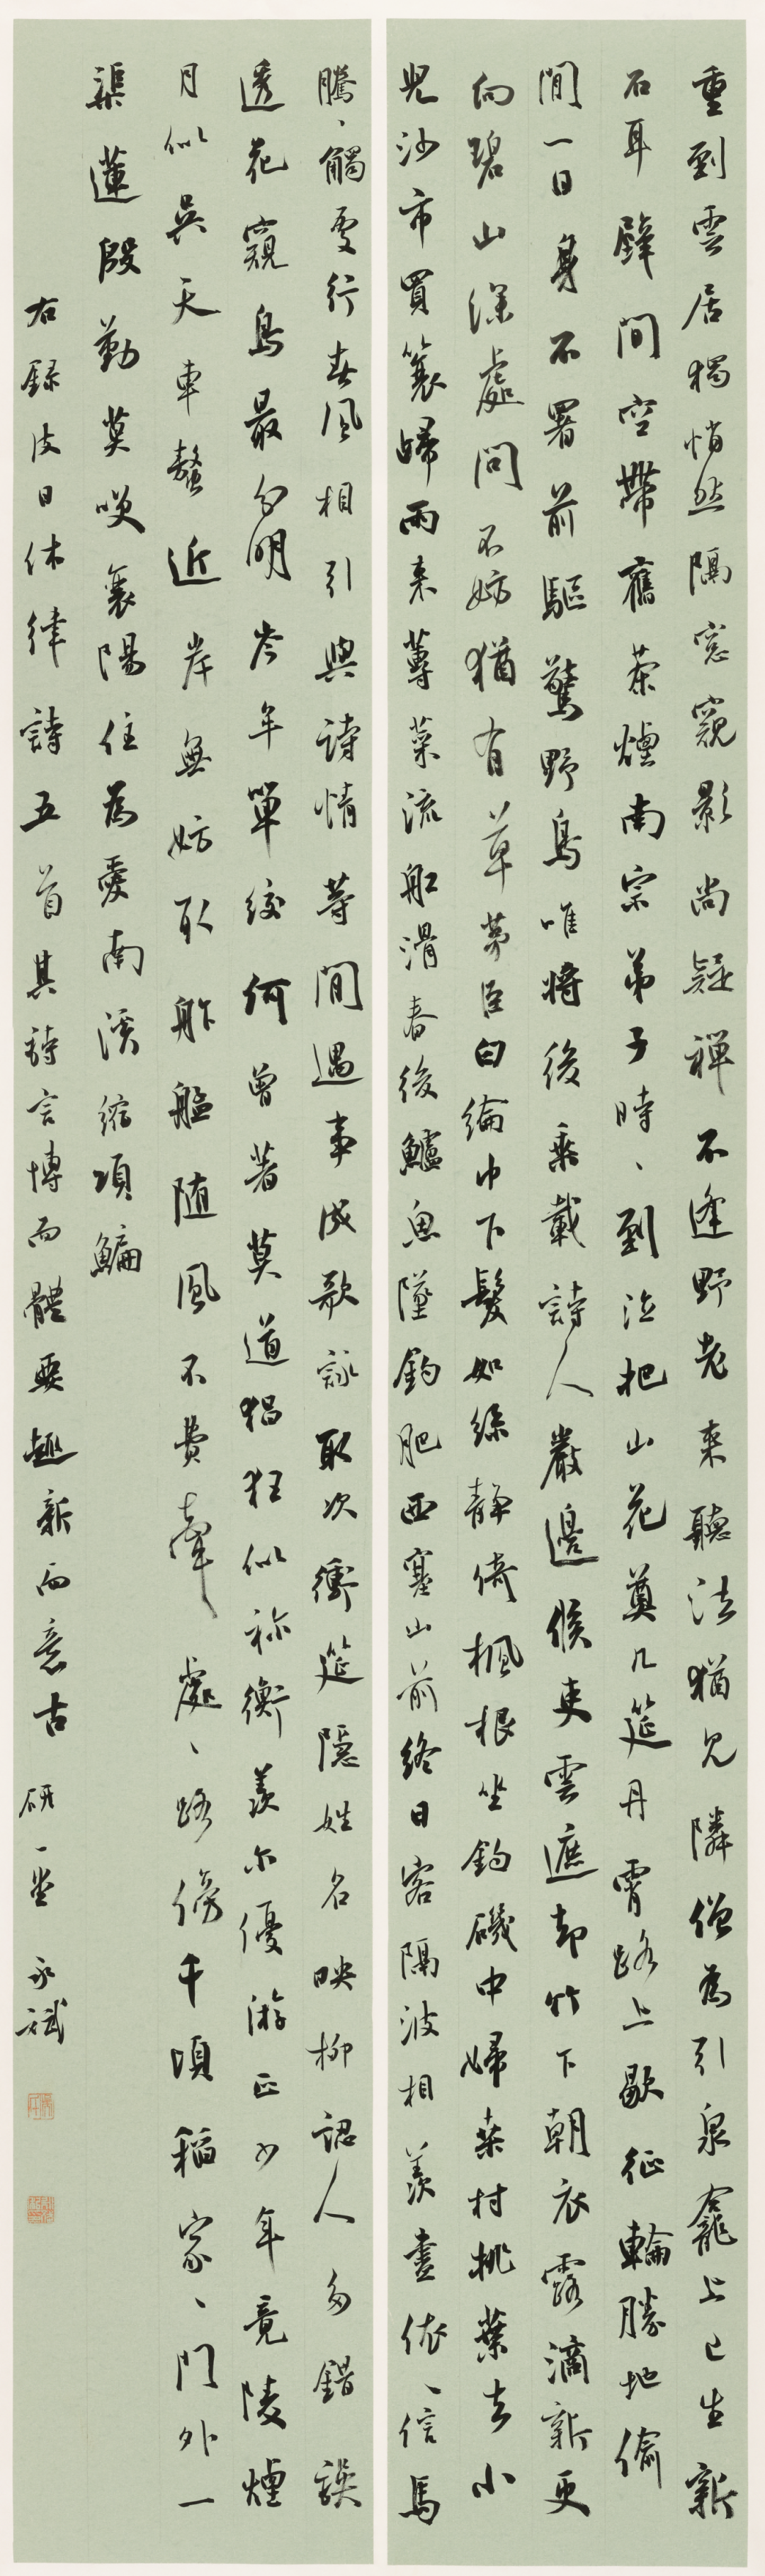 重到雲居獨悄然隔窓窺影尚疑禪不逢野老來聽法猶見隣僧為引泉龕上已生新
石耳壁間空帶舊茶煙南宗弟子時、到泣把山花奠几筵丹霄路上歇征輪勝地偷
閒一日身不署前驅驚野鳥唯將後乘載詩人巖邊候吏雲遮却竹下朝衣露滴新更
向碧山深處問不妨猶有草茅臣白綸巾下髮如絲靜倚楓根坐釣磯中婦桑村挑葉去小
兒沙市買蓑歸雨來蓴菜流船滑春後鱸魚墜釣肥西塞山前終日客隔波相羨盡依、信馬
騰、觸處行春風相引與詩情等閒遇事成歌詠取次衝筵隱姓名映柳認人多錯誤
透花窺鳥最分明岑年單絞何曾著莫道猖狂似祢衡羨尔優游正少年竟陵煙
月似吳天車螯近岸無妨取舴艋隨風不費牽處、路傍千頃稻家、門外一
渠蓮殷勤莫笑襄陽住為愛南溪縮項鯿
右録皮日休律詩五首其詩言博而體要趣新而意古 研一堂 永斌